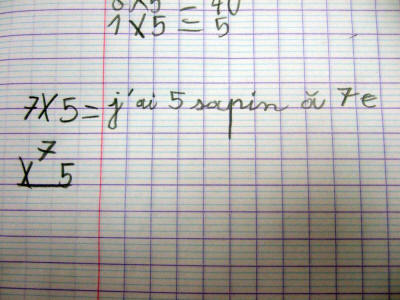 8 X 5 = 40
1 X 5 = 5
7 X 5 = j'ai 5 sapin à 7e
7
X 5